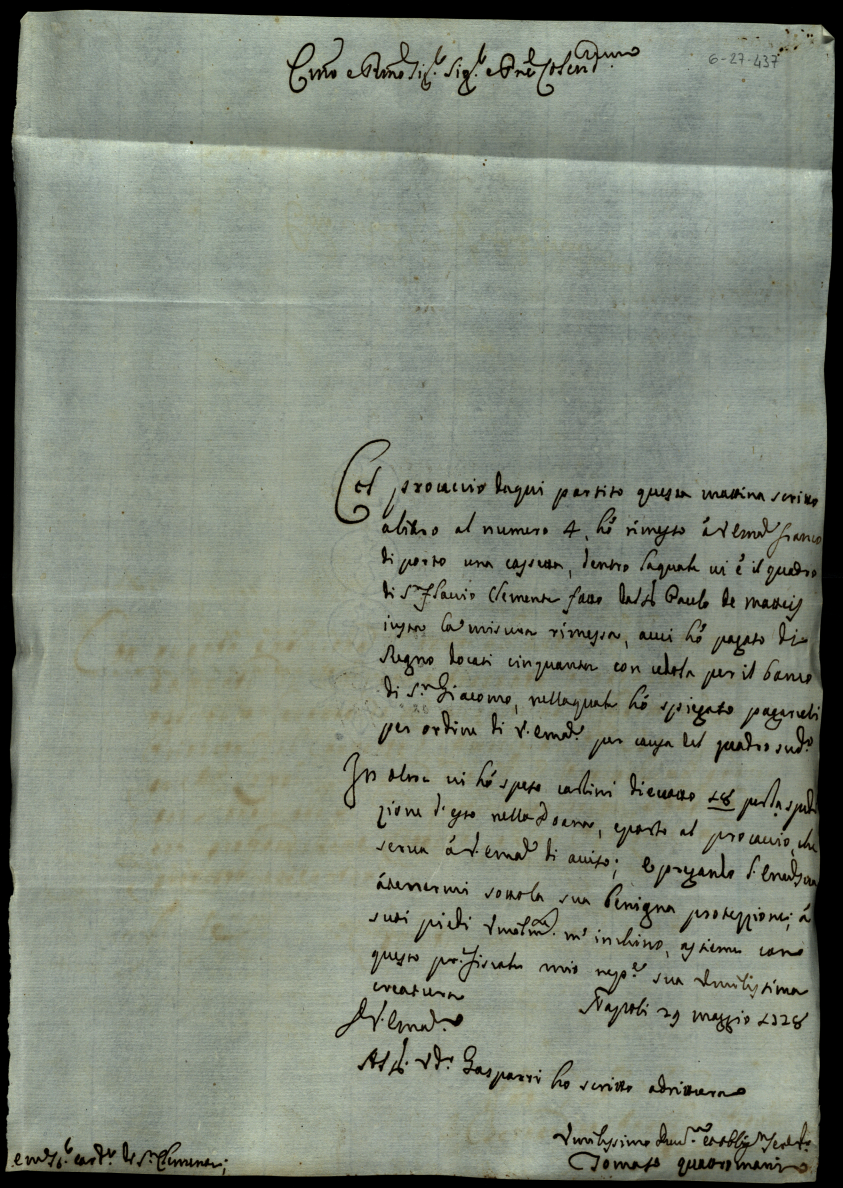 6-27-437
Emo e Rmo Sig.r Sig.r e Pne Colendmo
Col procaccio daqui partito questa mattina scritto
alibro al numero 4, hò rimesso à V Emza franco
di porto una cassetta, dentro laquale vi è il quadro
di S.n Flavio Clemente fatto dal S.r Paulo de Matteis
iusta la misura rimessa, a cui hò pagato di
Regno docati cinquanta con cedola per il banco
di S.n Giacomo, nellaquale hò spiegato pagarceli
per ordine di V. Emza. per causa del quadro sud.o
In oltre vi hò speso carlini dieceotto 18 per la spedi
zione d'esso nella Doana, e porto al procaccio, che
serva à V. Emza di aviso; e pregando V. Emza
à tenermi sotto la sua benigna protezzione, à
suoi piedi Umilm.te m'inchino, assieme con
questo pr. Fiscale mio nep.e sua Umilissima
creatura
Napoli 29 maggio 1728
D V. Emza.
Al S.r Ud.e Gasparri ho scritto adrittura
Umilissimo Devot.mo et obblig.mo Serv.re
Tomaso Quattromani
Em. S.r Card.le di S.n Clemente;